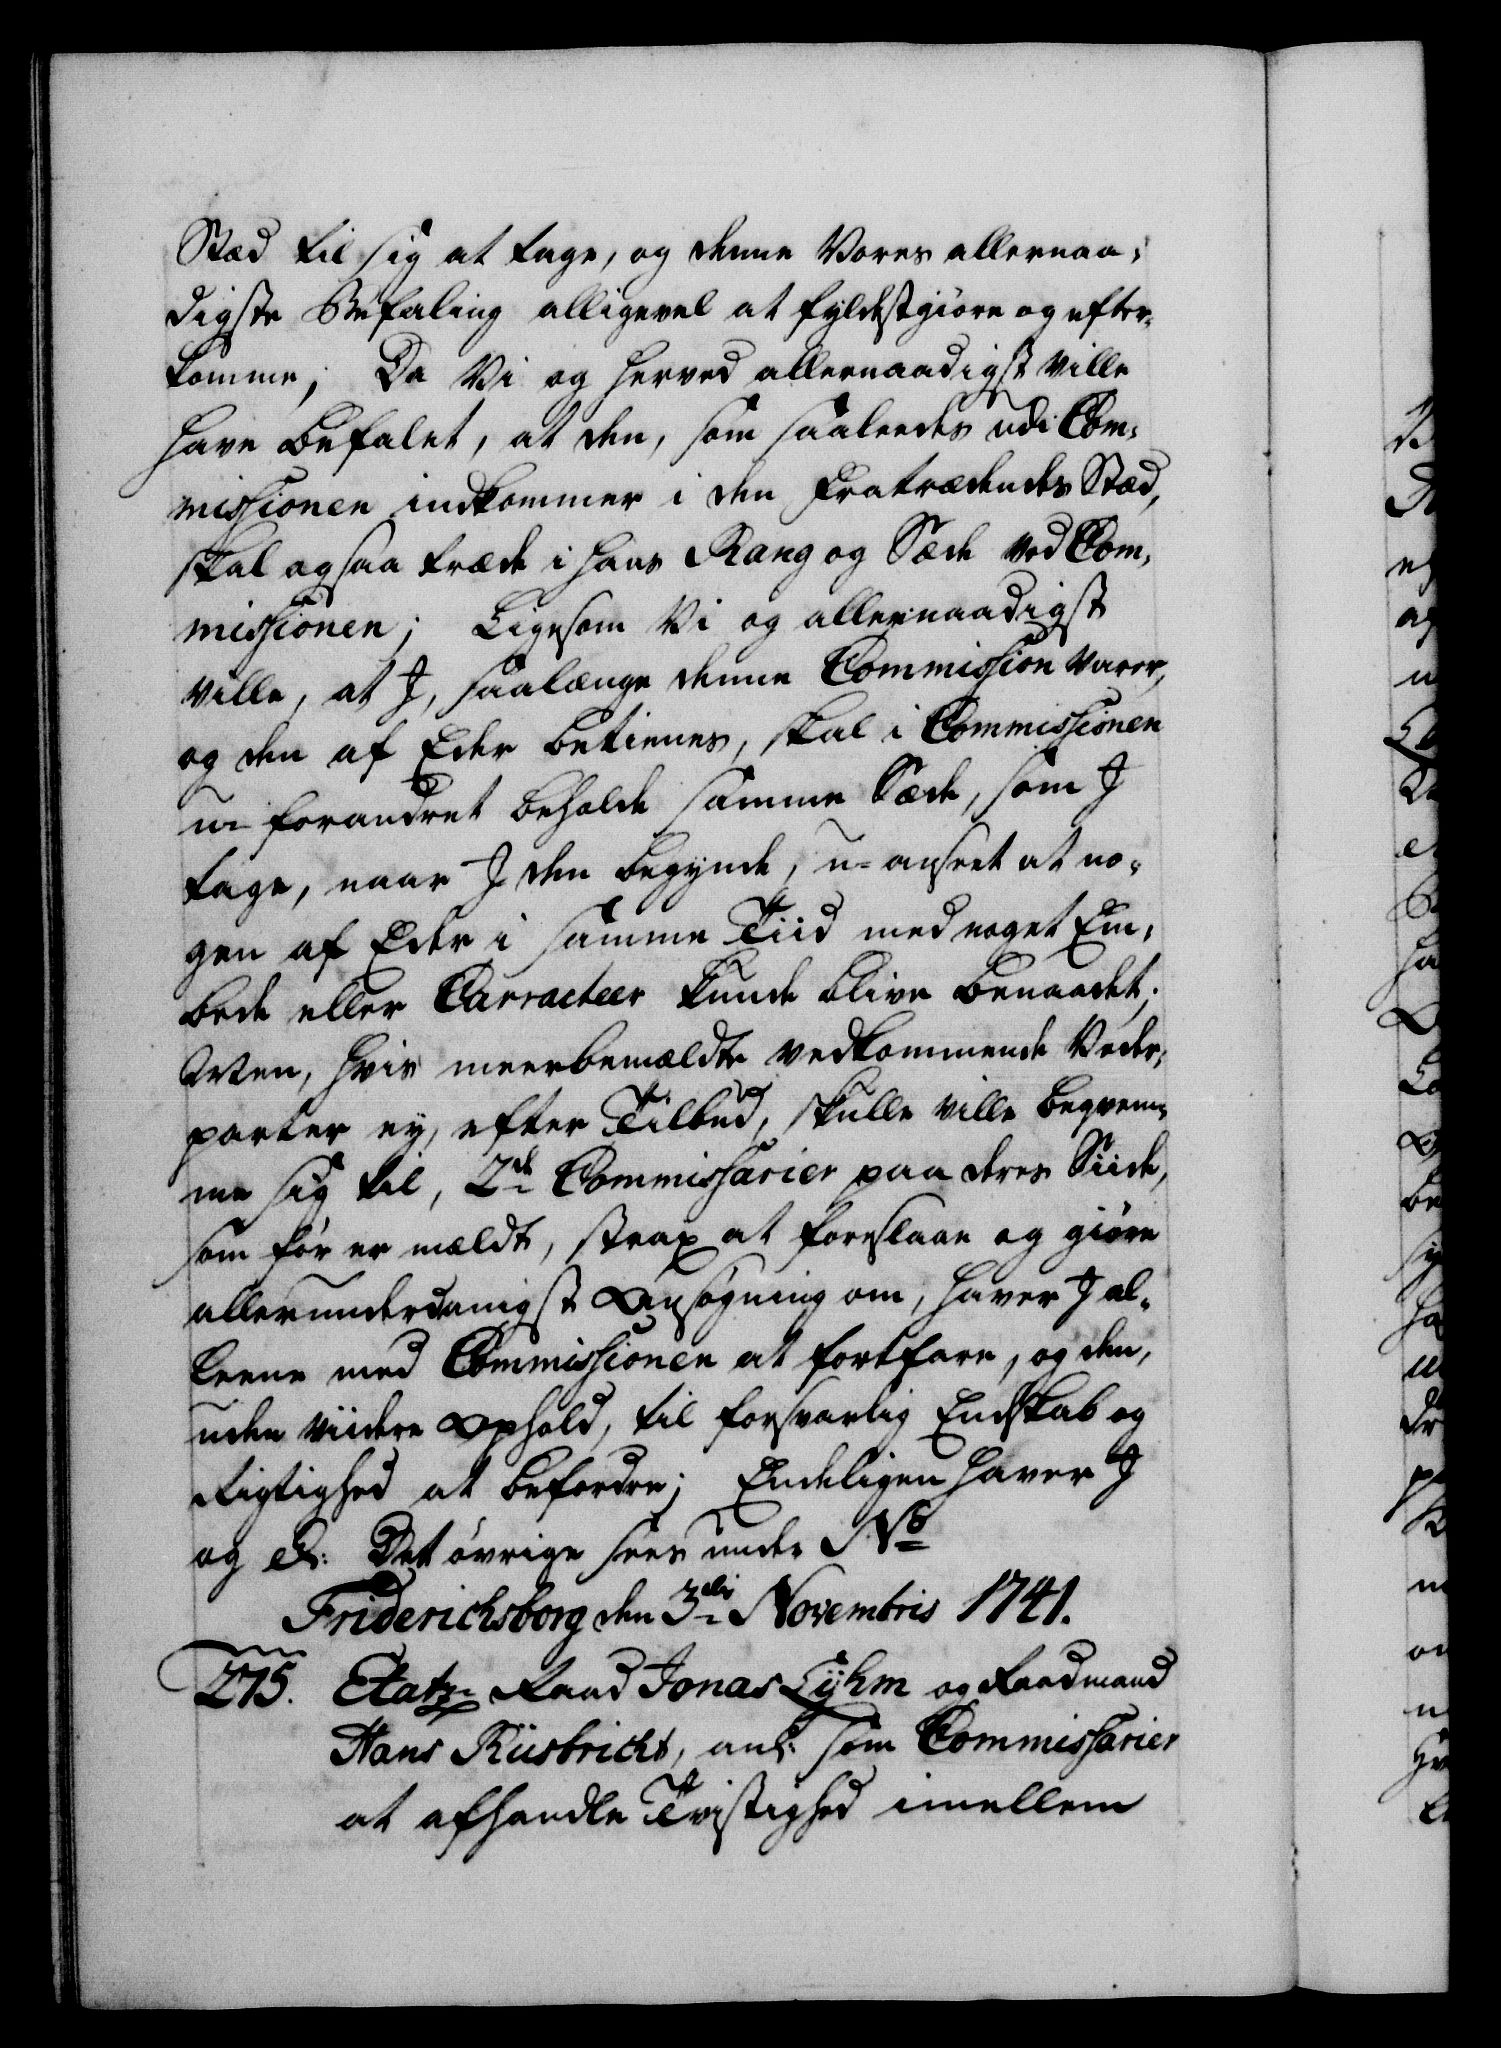 Stæd til sig at tage, og denne Vores allernaa-
digste Befaling alligevel at fyldestgiøre og efter-
komme; Da Vi og herved allernaadigst ville
have befalet, at den, som saaleedes udi Com-
missionen indkommer i den Fratrædendes Stæd,
skal ogsaa træde i hans Rang og Sæde ved Com-
missionen; Ligesom Vi og allernaadigst
ville, at I, saalænge denne Commission varer,
og den af Eder betienes, skal i Commissionen
u-forandret beholde samme Sæde, som I
tage, naar I den begynde, u-anseet at no-
gen af Eder i samme Tiid med noget Em-
bede eller Carracteer kunde blive benaadet;
Men, hvis meerbemældte vedkommende Veder-
parter ey, efter Tilbud, skulle ville beqvem-
me sig til, 2de Commissarier paa deres Siide,
som før er mældt, strax at foreslaae og giøre
allerunderdanigst Ansøgning om, haver I al-
leene med Commissionen at fortfare, og den,
uden viidere Ophold, til forsvarlig Endskab og
Rigtighed at befordre; Endeligen haver I
og &c: Det øvrige sees under No
Friderichsborg den 3die Novembris 1741.
275. Etatz-Raad Jonas Lyhm og Raadmand
Hans Riisbricht, anl: som Commissarier
at afhandle Tvistighed imellem